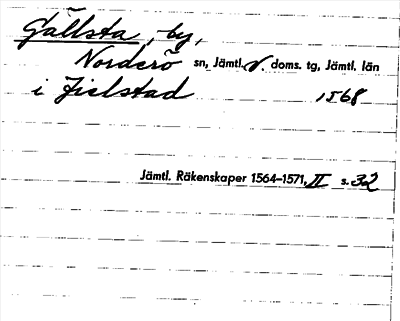 Gällsta, by,
Norderö sn, Jämtl. v. doms. tg, Jämtl. län
i Fielstad 1568
Jämtl. Räkenskaper 1564–1571, II s. 32